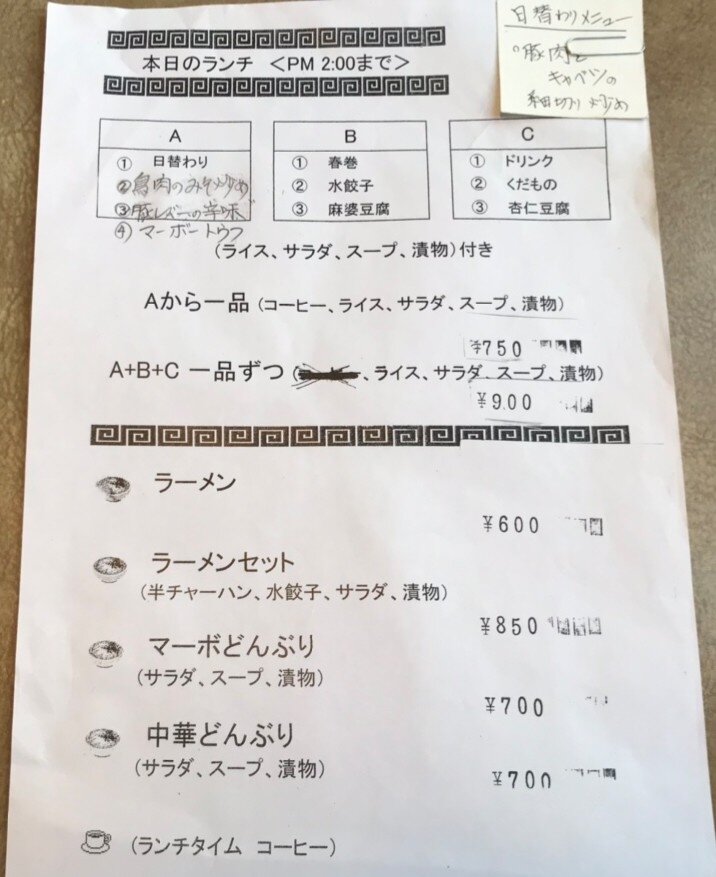 日替わりメニュー
豚肉と
キャベツの
細切り炒め
本日のランチ <PM 2:00まで>
A
① 日替わり
② 鳥肉のみそ炒め
③ 豚レバーの辛味
④ マーボートウフ
B
① 春巻
② 水餃子
③ 麻婆豆腐
C
① ドリンク
② くだもの
③ 杏仁豆腐
(ライス、サラダ、スープ、漬物)付き
Aから一品 (コーヒー、ライス、サラダ、スープ、漬物)
¥750
A+B+C 一品ずつ ( 、ライス、サラダ、スープ、漬物)
¥900
ラーメン
¥600
ラーメンセット
(半チャーハン、水餃子、サラダ、漬物)
¥850
マーボどんぶり
(サラダ、スープ、漬物)
¥700
中華どんぶり
(サラダ、スープ、漬物)
¥700
(ランチタイム コーヒー)